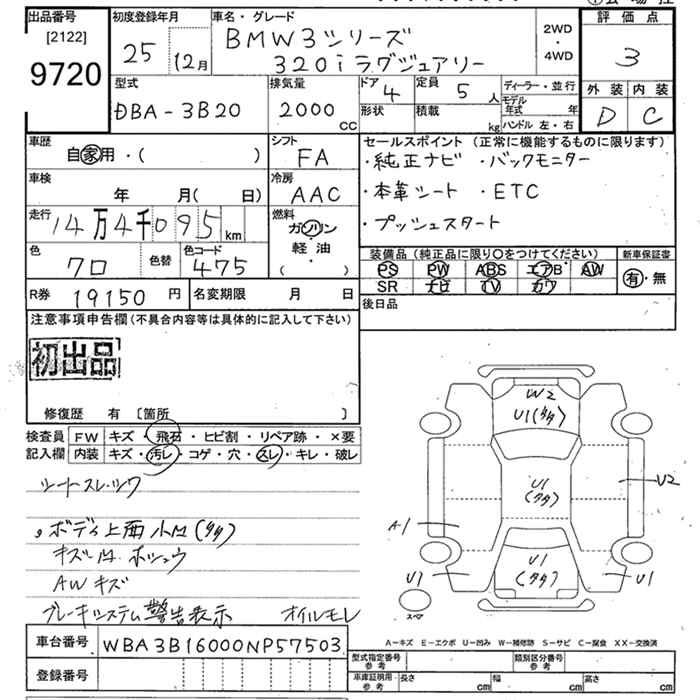 出品番号 初度登録年月 車名・グレード 評価点
[2122] 25 12月 BMW3シリーズ 2WD・4WD 3
9720 320iラグジュアリー
外装 内装
D C
型式 排気量 ドア 4 定員 5人 ディーラー・並行
DBA-3B20 2000cc 形状 積載 kg モデル年式 年
ハンドル 左・右
車歴 シフト セールスポイント (正常に機能するものに限ります)
自家用・( ) FA ・純正ナビ ・バックモニター
車検 冷房
年 月( 日) AAC ・本革シート ・ETC
走行 燃料
14万4千095km ガソリン ・プッシュスタート
軽油
( )
色 色替 色コード 装備品 (純正品に限り○をつけてください) 新車保証書
クロ 475 PS PW ABS エアB AW 有・無
SR ナビ TV カワ
R券 19150円 名変期限 月 日 後日品
注意事項申告欄(不具合内容等は具体的に記入して下さい)
初出品
修復歴 有 [箇所 ]
検査員 FW キズ・飛石・ヒビ割・リペア跡・×要
記入欄 内装 キズ・汚レ・コゲ・穴・スレ・キレ・破レ
シートスレ・シワ
ボディ上面小U(タタ)
キズ・U・ホシュウ
AWキズ
ブレーキシステム警告表示 オイルモレ
W2
U1(タタ)
U1
(タタ)
U2
A1
U1
(タタ)
U1
U1
スペア
A-キズ E-エクボ U-凹み W-補修跡 S-サビ C-腐食 XX-交換済
車台番号 WBA3B16000NP57503
登録番号
型式指定番号 参考 類別区分番号 参考
車庫証明用・参考 長さ cm 幅 cm 高さ cm